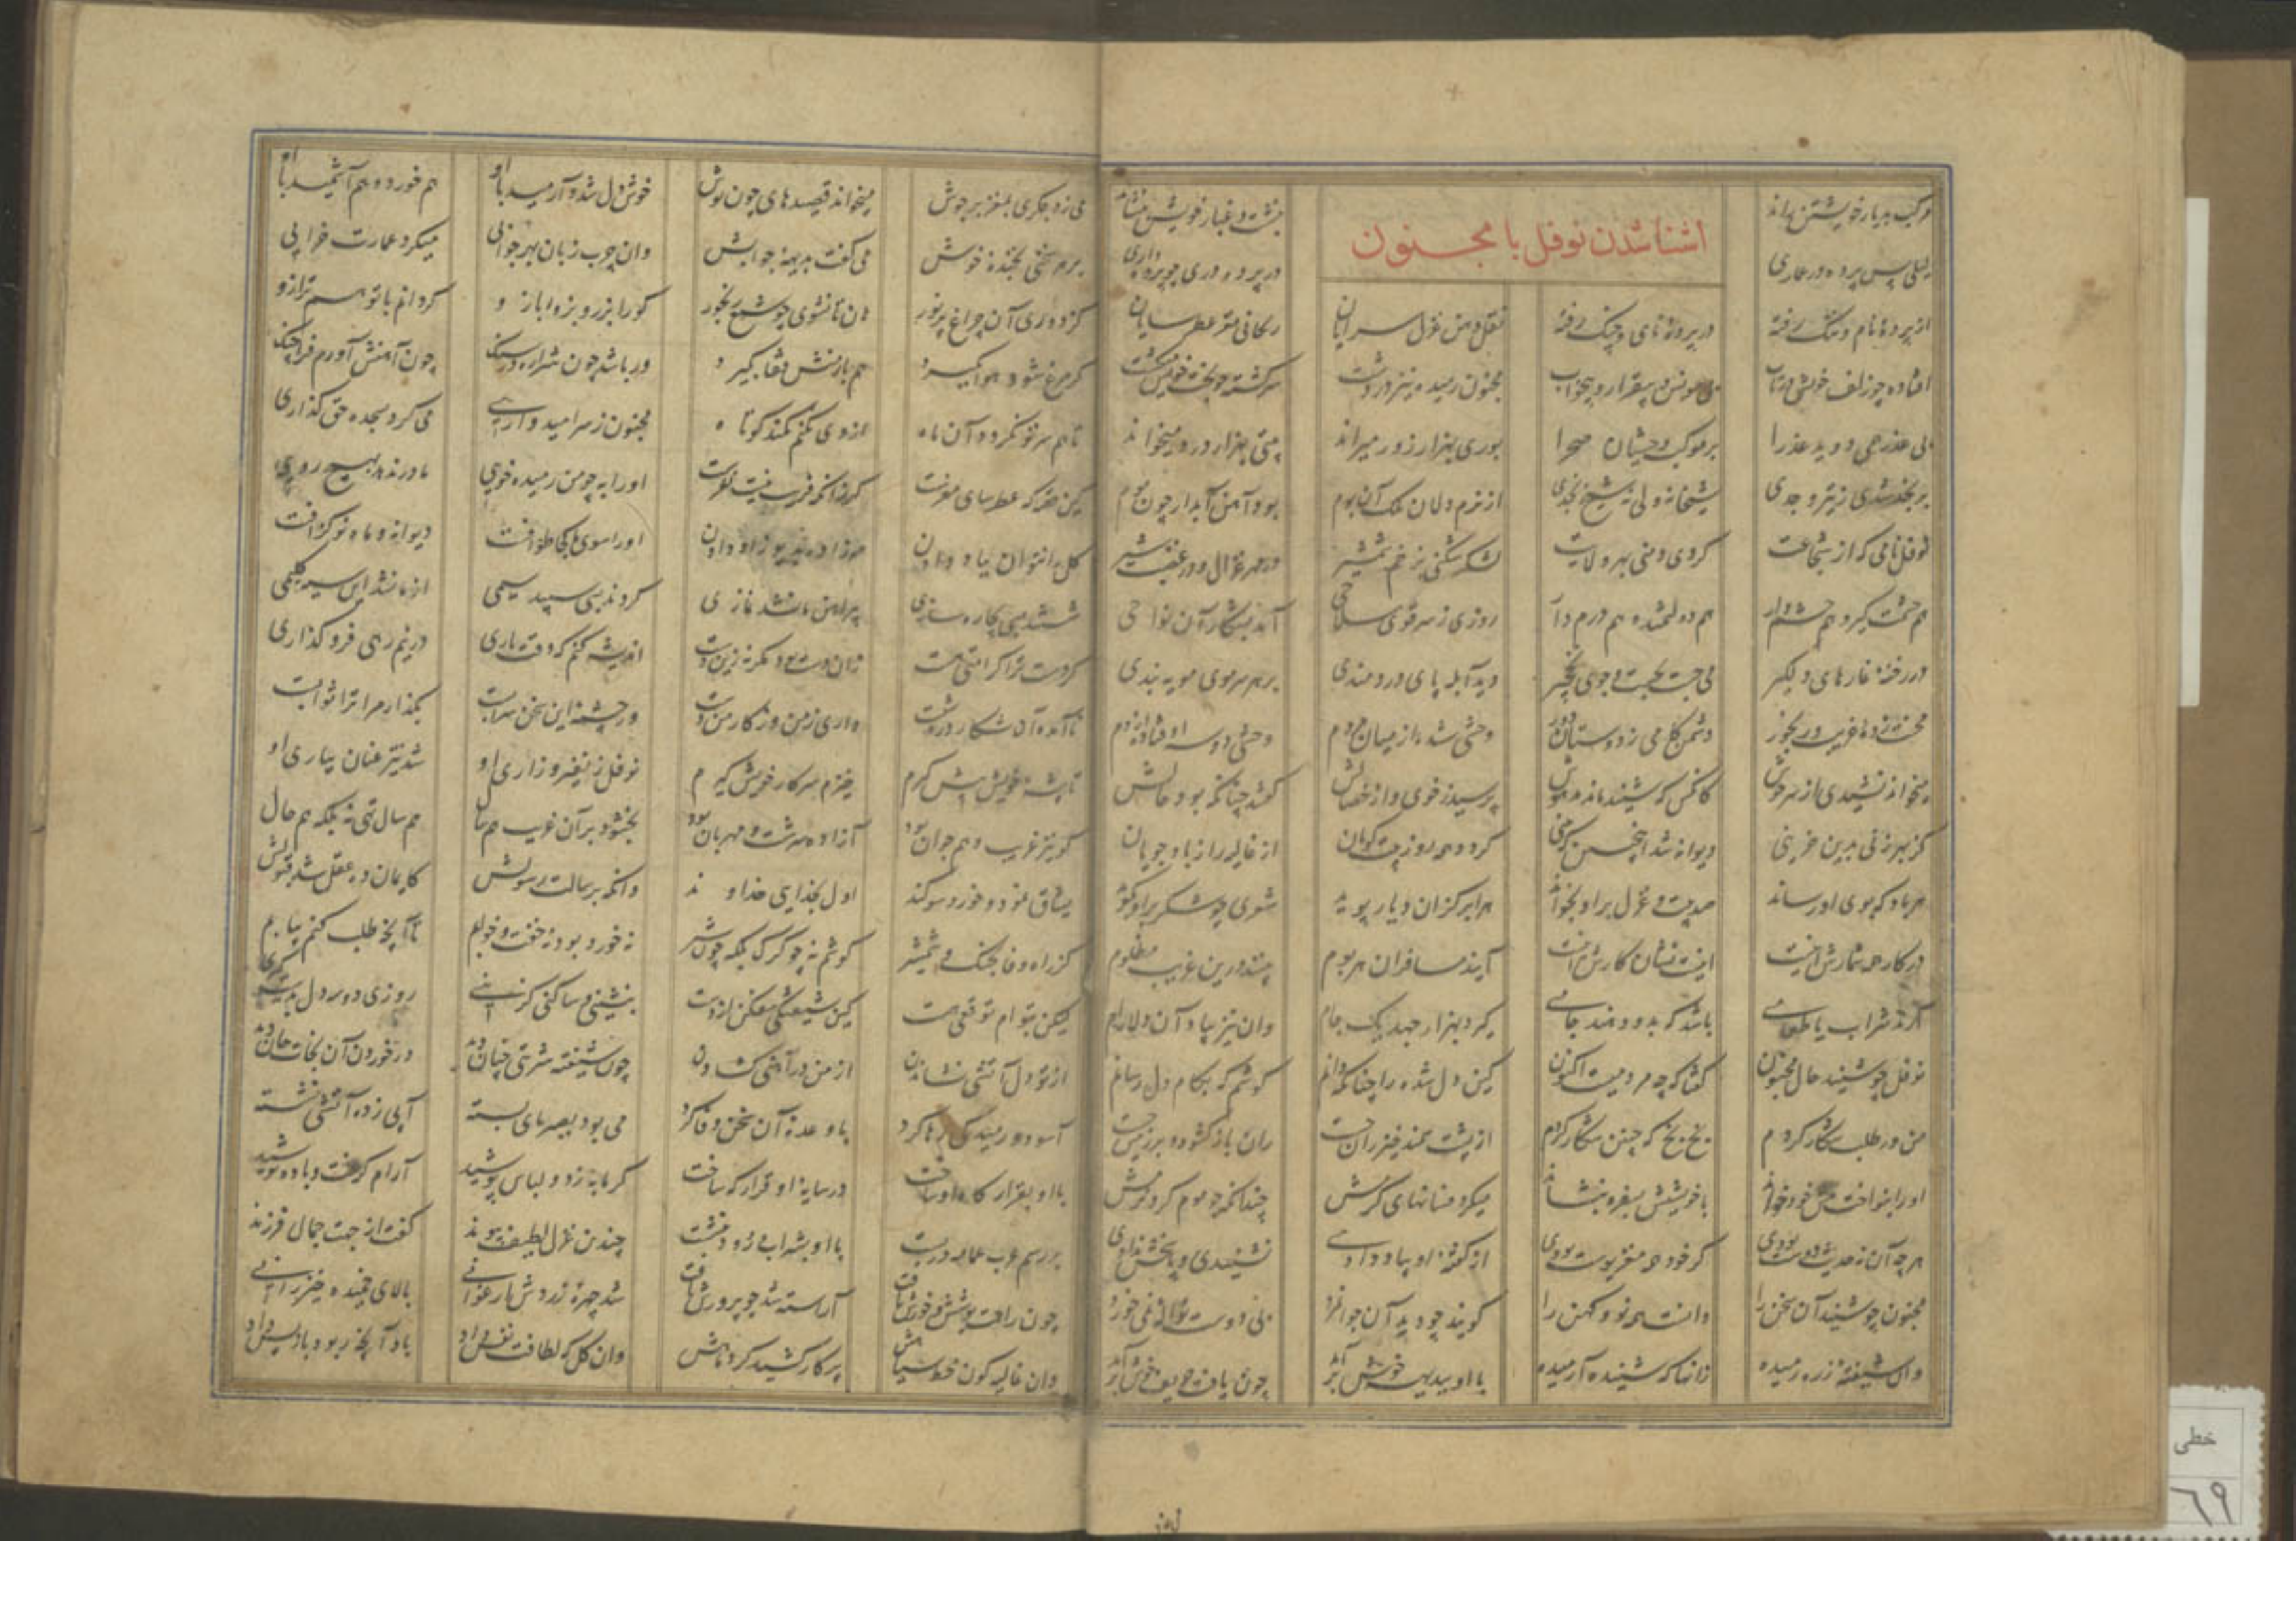 مرکب بدیار خویشتن راند بنشست و غبار خویش بنشاند
لیلی پس پرده در عماری در پرده دری چو پرده داری
اشنا شدن نوفل با مجنون
از پرده نام و ننگ رفته در پرده نای و چنگ رفته نقل دهن غزل سرایان ریحانی مغز عطر سایان
افتاده چو زلف خویش در تاب بی مونس و بیقرار و بیخواب مجنون رمیده نیز در دشت سرگشته چو بخت خویش میگشت
بی عذر همی دوید عذرا بر موکب وحشیان صحرا بوری بهزار زور میراند بیتی بهزار درد میخواند
بر نجد شدی ز تیر وجدی شیخانه ولی نه شیخ نجدی از نرم دلان ملک آن بوم بود آهن آبدار چون موم
نوفل نامی که از شجاعت کردی دمنی بهر ولایت لشکر شکنی بزخم شمشیر در مهر غزال و در غضب شیر
هم حشمت گیر و هم حشم دار هم دولتمند و هم درم دار روزی ز سر قوی سلاحی آمد بشکار آن نواحی
در رخنه غارهای دلگیر می جست بجست و جوی نخچیر دید آبله پای دردمندی بر هر سر موی مویه بندی
محنت زده غریب و رنجور دشمن کامی ز دوستان دور وحشی شده از میان مردم وحشی دو سه اوفتاده در دم
میخواند نشیدی از سر هوش کانکس که شنید ماند مدهوش پرسید ز خوی و از خصالش گفتند چنانکه بود حالش
کز مهر زنی بدین حزینی دیوانه شد اینچنین که بینی گردد همه روز بیت گویان از غالیه راز باد جویان
هر باد که بوی او رساند صد بیت و غزل بر او بخواند هر ابر کزان دیار پوید شعری چو شکر بر او گوید
در کار همه شمارش اینست اینست نشان کارش اینست آیند مسافران هر بوم بینند درین غریب مظلوم
آرند شراب یا طعامی باشد که بدو دهند جامی گیرد بهزار جهد یک جام وان نیز بیاد آن دلارام
نوفل چو شنید حال مجنون گفتا که چه مردمیست اکنون کین دل شده را چنانکه دانم کوشم که بکام دل رسانم
من در طلب شکار کردم بخ بخ که چنین شکار کردم از پشت سمند خیزران دست ران باز گشود و بر زمین جست
او را بنواخت پیش خود خواند با خویشتنش بسفره بنشاند میکرد فسانهای گرمش چندانکه چو موم کرد نرمش
هر چه آن نه حدیث دوست بودی گر خود همه مغز پوست بودی از گفته او بیاد دادی نشنیدی و پاسخش ندادی
مجنون چو شنید آن سخن را دانست نو و کهن را گویند چو دید آن جوانمرد بی دوست نواله نمی خورد
وان شیفته ز ره رمیده زانها که شنید آرمیده با او ببدیهه خوش برآمد چون یافت حریف خوش درآمد
می زد جگری بمغز بر جوش میخواند قصیدهای چون نوش خوش دل شد و آرمید با او هم خورد و هم آشمید با او
بر هر سخنی بخنده خوش می گفت بدیهه جوابش وان چرب زبان بهر جوابی میکرد عمارت خرابی
کز دوری آن چراغ پرنور هان تا نشوی چو شمع رنجور کو را بزر و بزور بازو گردانم با تو هم ترازو
گر مرغ شود هوا بگیرد هم بازنش قفا بگیرد ور باشد چون شراره در سنگ چون آهنش آورم فرا چنگ
تا هم سر تو نگردد آن ماه از وی نکنم کمند کوتاه مجنون ز سر امیدواری می کرد بسجده حق گذاری
کین قصه که عطرسای مغزست گر زانکه فریب نیست نغزست او را به چو من رمیده خویی مادر ندهد بهیچ رویی
گل را نتوان بباد دادن مه زاده بدیو زاد دادن او را سوی ما کجا طوافست دیوانه و ماه نو گزافست
شستند بسی بچاره سازی پیراهن ما نشد نمازی کردند بسی سپید سیمی از ما نشد این سیه گلیمی
گر دست ترا کرامتی هست زان دست بود مگر نه زین دست اندیشه کنم که وقت یاری در نیم رهی فرو گذاری
نا آمده آن شکار در دست داری ز من و ز کار من دست ور چشمه این سخن سرابست بگذار مرا ترا ثوابست
تا پیشه خویش پیش گیرم خیزم سر کار خویش گیرم نوفل ز نفیر و زاری او شد تیز عنان بیاری او
کو نیز غریب و هم جوان بود آزاده سرشت و مهربان بود بخشود بر آن غریب هم سال هم سال تهی نه بلکه هم حال
میثاق نمود و خورد سوگند اول بخدایی خداوند وانگه برسالت رسولش کایمان ده عقل شد قبولش
کز راه وفا بجنگ و شمشیر کوشم نه چو گرگ بلکه چون شیر نه خورد بود نه خفت و خوابم تا آنچه طلب کنم بیابم
لیکن بتوام توقعی هست کین شیفتگی بیفکن از دست بنشینی و ساکنی گزینی روزی دو سه دل بدست
از تو دل آتشین نشاندن از من در آهنین گشادن چون شیفته شربتی چنان دید در خوردن آن نجات جان دید
آسود و رمیدگی رها کرد با وعده آن سخن وفا کرد می بود بصبر پای بسته آبی زده آتشی نشسته
با او بقرارگاه او تاخت در سایه او قرارگه ساخت گرمابه زد و لباس پوشید آرام گرفت و باده نوشید
بر رسم عرب عمامه دربست با او بشراب و رود بنشست چندین غزل لطیفه پیوند گفت از جهت جمال فرزند
چون راحت پوشش و خورش یافت آراسته شد چو پرورش یافت شد چهره زردش ارغوانی بالای خمیده خیزرانی
وان غالیه گون خط سیاهش پرگار کشید گرد ماهش وان گل که لطافت نفس داد باد آنچه ربود باز پس داد
خطی
٦٩